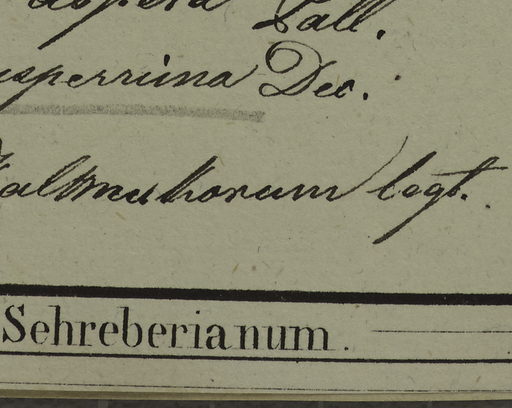 aspera Pall.
asperrima Dec.
Kalmukorum legt.
Schreberianum.